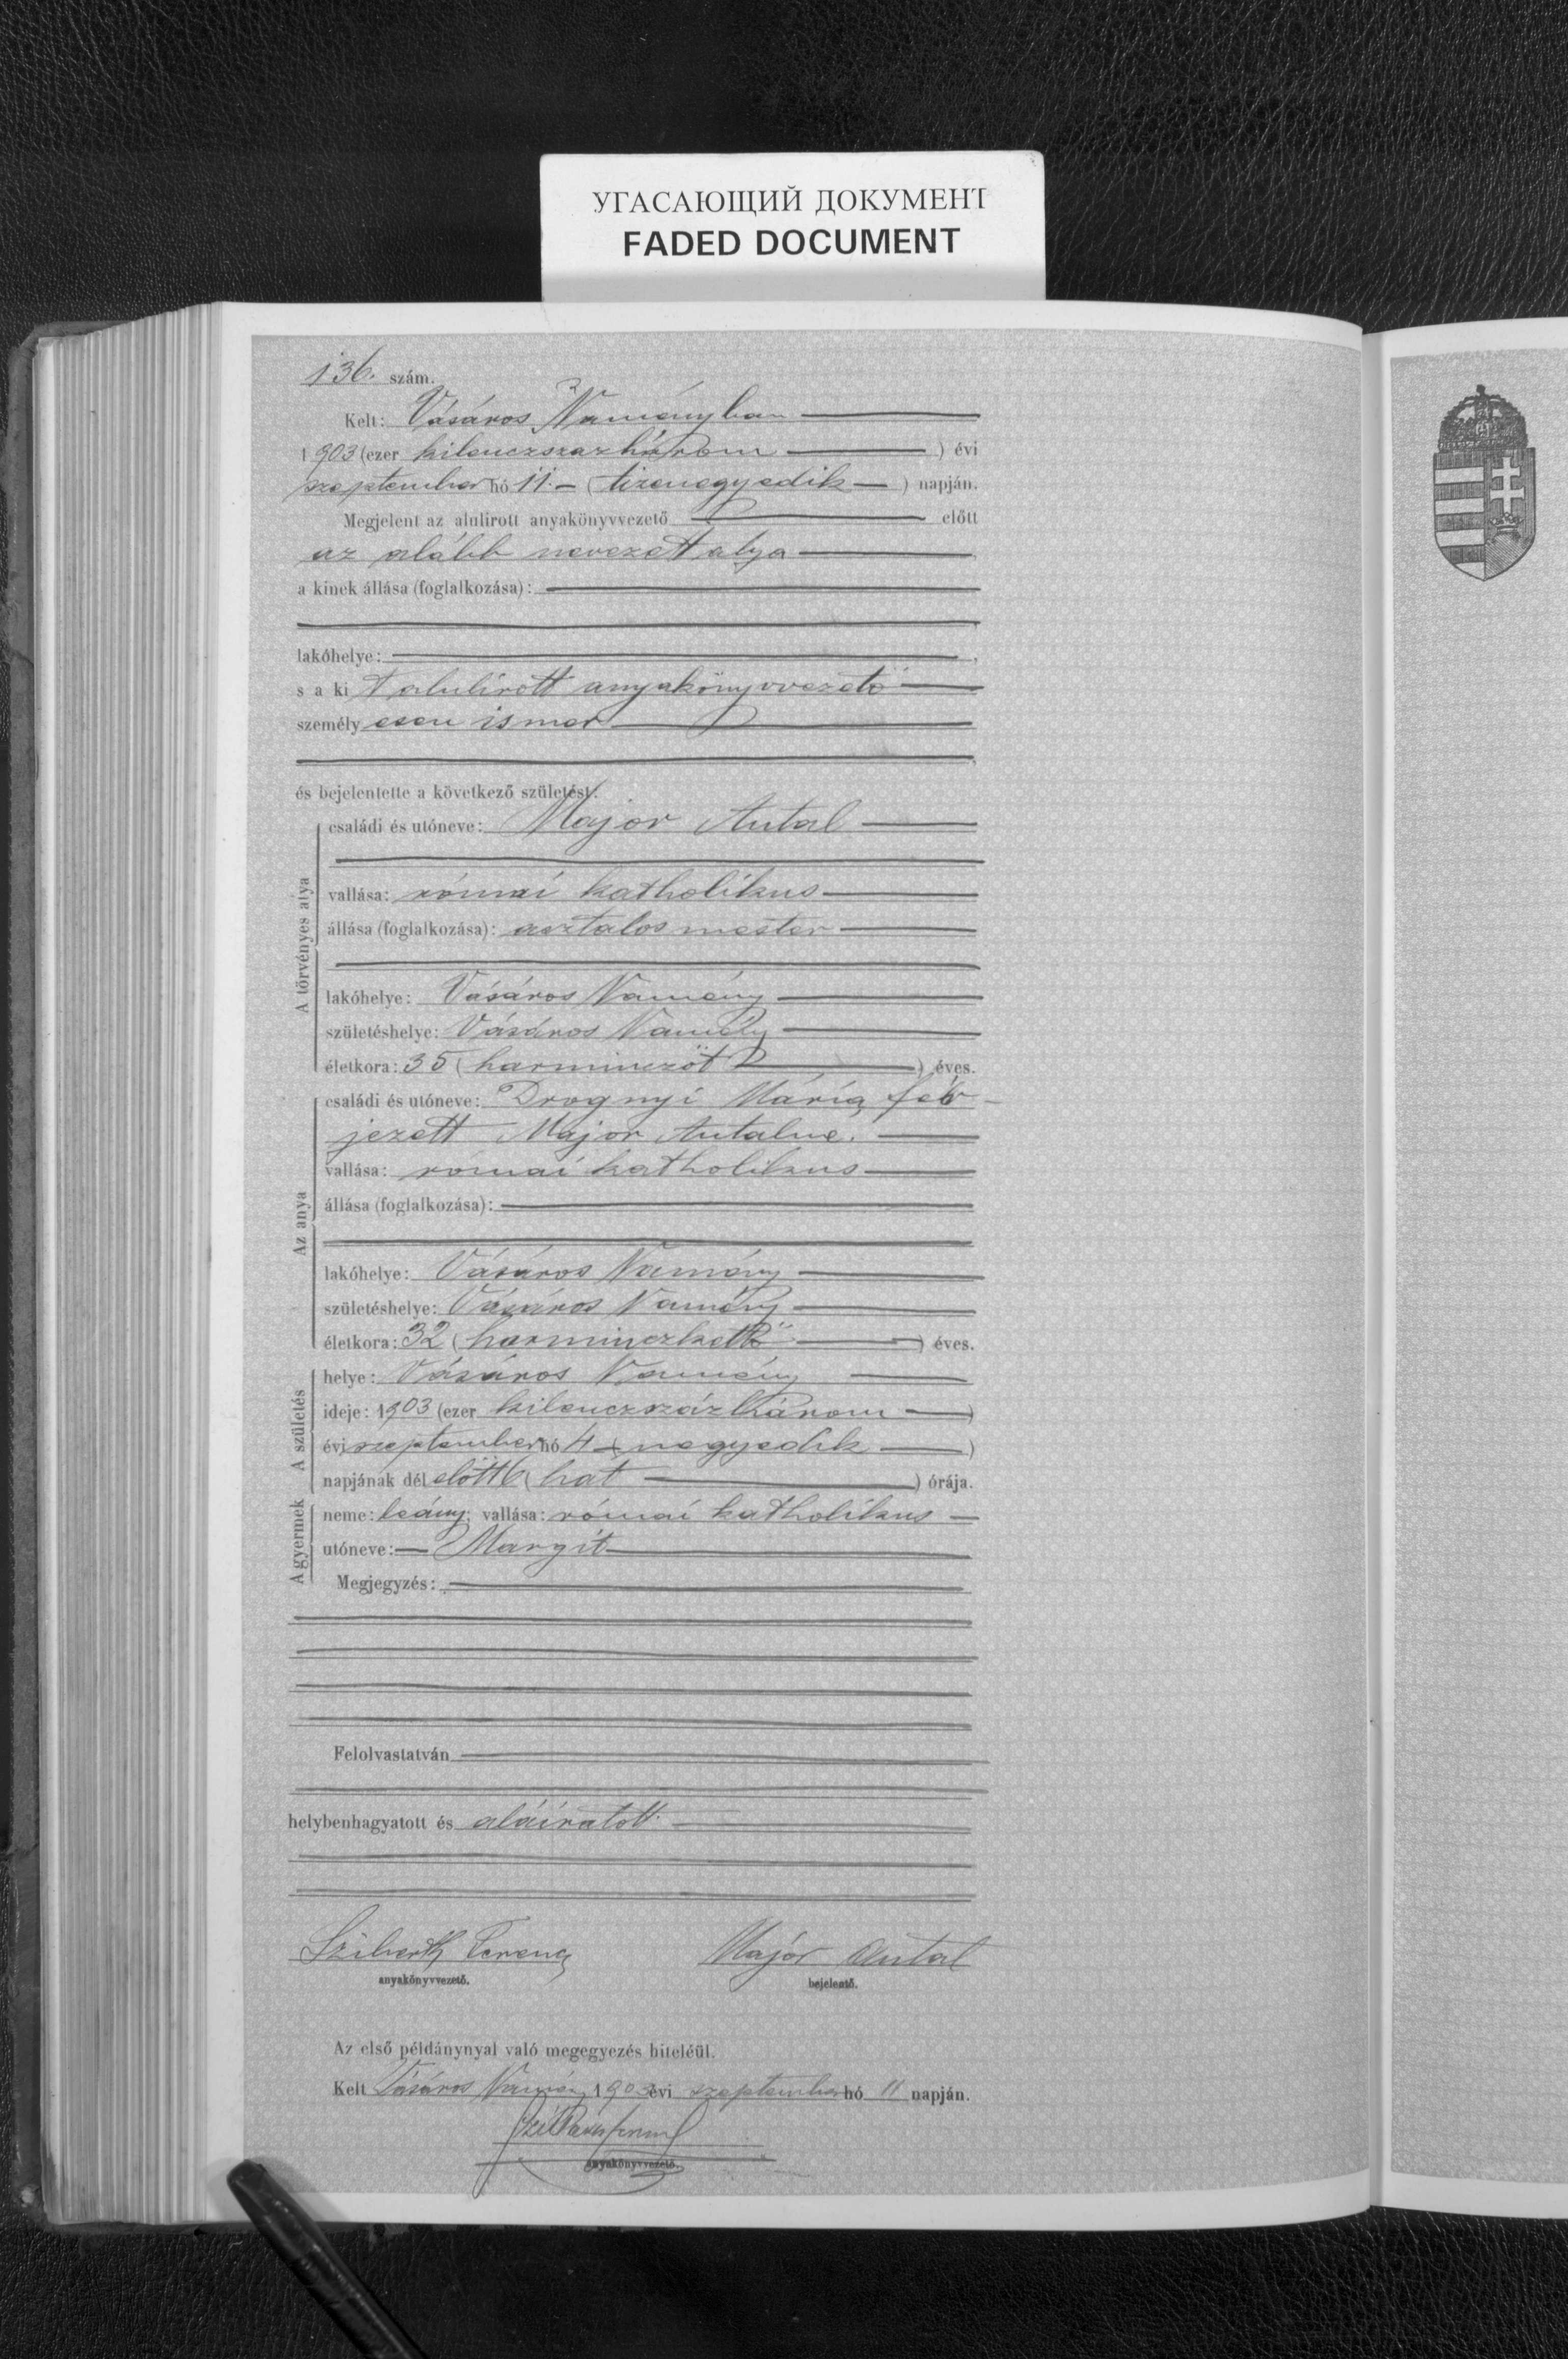 УГАСАЮЩИЙ ДОКУМЕНТ
FADED DOCUMENT
136. szám.
Kelt: Vásáros Naményban
1903 (ezer kilenczszazhárom ) évi
szeptember hó 11. – ( tizenegyedik – ) napján.
Megjelent az alulirott anyakönyvvezető előtt
az alább nevezett atya ,
a kinek állása (foglalkozása):
lakóhelye: ,
s a ki t alulírott anyakönyvvezető
személy esen ismer
és bejelentette a következő születést:
A törvényes atya
családi és utóneve: Major Antal
vallása: római katholikus
állása (foglalkozása): asztalos mester
lakóhelye: Vásáros Namény
születéshelye: Vásáros Namény
életkora: 35 ( harminczöt ) éves.
Az anya
családi és utóneve: Drognyi Mária férjezett Major Antalne.
vallása: római katholikus
állása (foglalkozása):
lakóhelye: Vásáros Namény
születéshelye: Vásáros Namény
életkora: 32 ( harminczkettő ) éves.
A születés
helye: Vásáros Namény
ideje: 1903 (ezer kilenczszázhárom )
évi szeptember hó 4 ( negyedik )
napjának dél előtt 6 ( hat ) órája.
A gyermek
neme: leány; vallása: római katholikus
utóneve: Margit
Megjegyzés:
Felolvastatván
helybenhagyatott és aláíratott.
Ferencz Major Antal
anyakönyvvezető. bejelentő.
Az első példánynyal való megegyezés hiteléül.
Kelt Vásáros Namény 1903 évi szeptember hó 11 napján.
anyakönyvvezető.